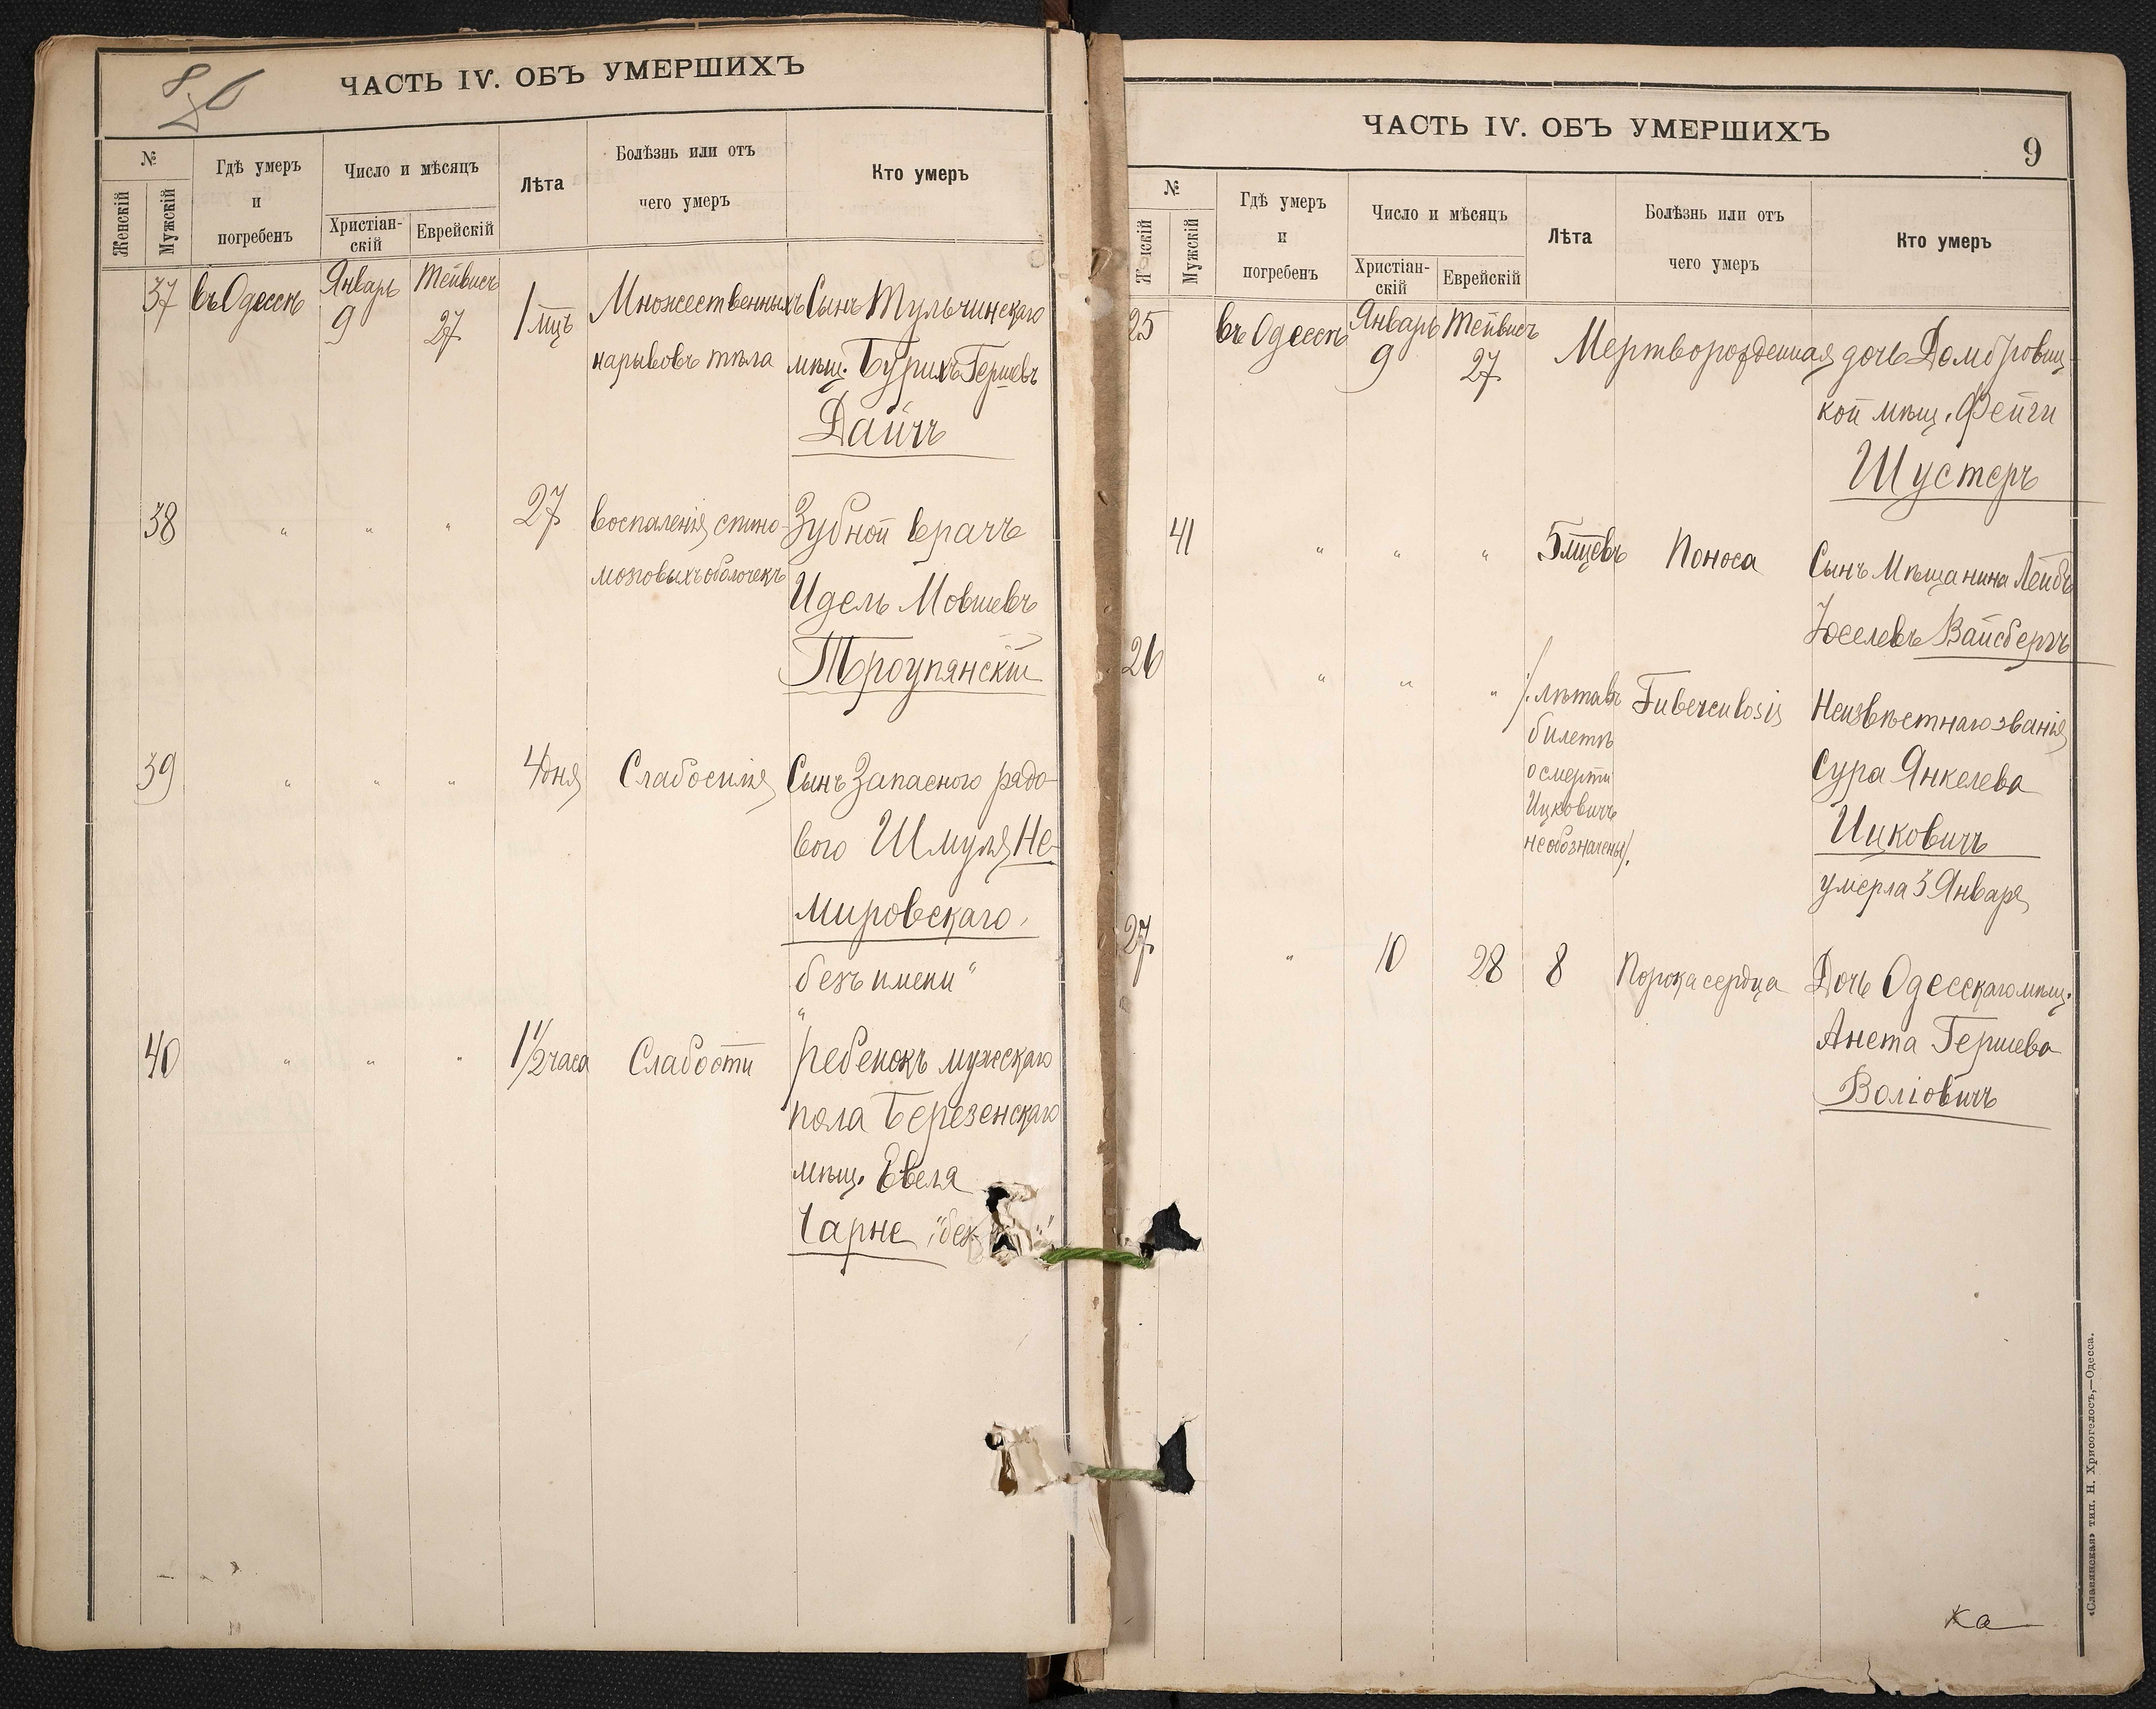 ЧАСТЬ IV. ОБЪ УМЕРШИХЪ
№
Женскій
Мужскій
Гдѣ умеръ
и
погребенъ
Число и мѣсяцъ
Христіан-
скій
Еврейскій
Лѣта
Болѣзнь или отъ
чего умеръ
Кто умеръ
37 въ Одессѣ Январь 9 Тейвисъ 27 1 мцъ
Множественныхъ
нарывовъ тѣла
Сынъ Тульчинскаго
мѣщ. Бурихъ Гершевъ
Дайчъ
38 " " " 27
воспаленія спино-
мозговыхъ оболочекъ
Зубной врачъ
Идель Мовшевъ
Троупянскій
39 " " " 4 дня Слабосилія
Сынъ Запасного рядо-
вого Шмуля Не-
мировскаго,
безъ имени"
"
40 " " " 1 1/2 часа Слабости
ребенокъ мужскаго
пола Березенскаго
мѣщ. Евеля
Чарне "без
ЧАСТЬ IV. ОБЪ УМЕРШИХЪ
9
№
Женскій
Мужскій
Гдѣ умеръ
и
погребенъ
Число и мѣсяцъ
Христіан-
скій
Еврейскій
Лѣта
Болѣзнь или отъ
чего умеръ
Кто умеръ
25 въ Одессѣ Январь 9 Тейвисъ 27
Мертворожденная дочь Домбровиц-
кой мѣщ. Фейги
Шустеръ
41 " " " 5 мцевъ Поноса
Сынъ Мѣщанина Лейбъ
Юселевъ Вайсбергъ
26 " " "
/. лѣта въ
билетѣ
о смерти
Ицковичъ
не обозначены/.
Tuberculosis
Неизвѣстнаго званія
Сура Янкелева
Ицковичъ
умерла 3 Января
27 " 10 28 8 Порока сердца
Дочь Одесскаго мѣщ.
Анета Гершева
Воліовичъ
ка
«Славянская» тип. Н. Хрисогелосъ,—Одесса.